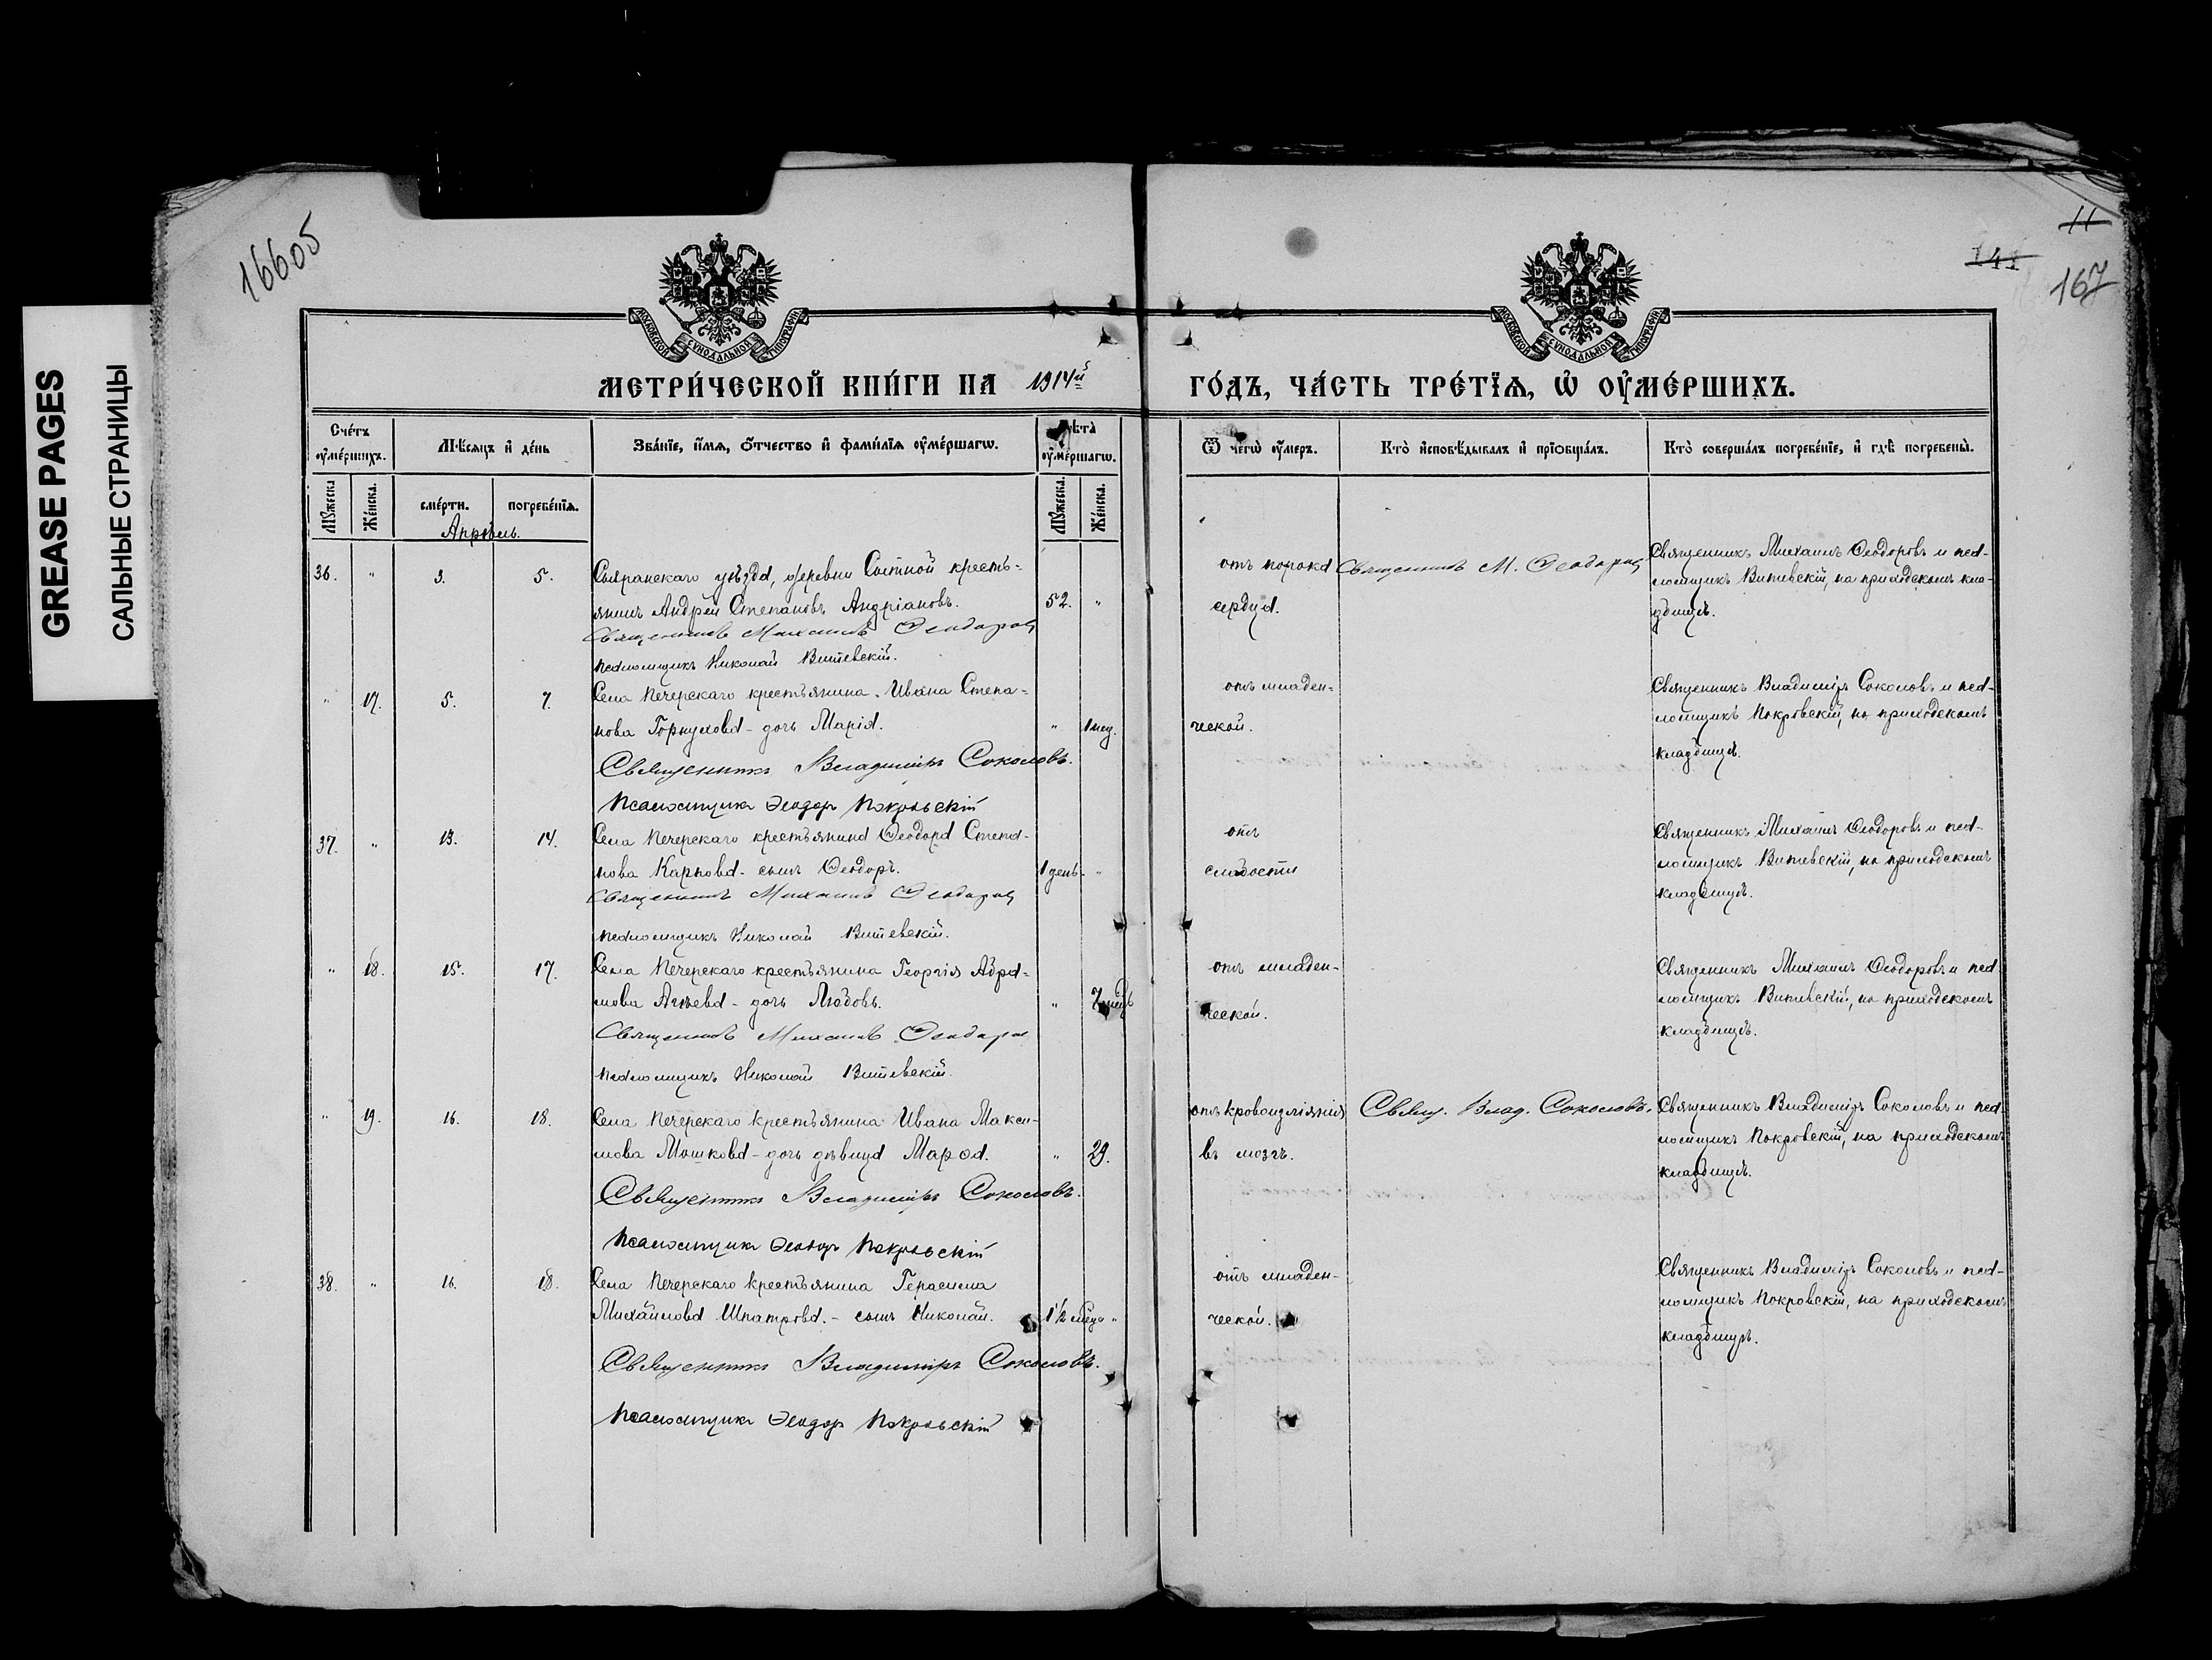 GREASE PAGES
САЛЬНЫЕ СТРАНИЦЫ
16605
11
141
167
МОСКОВСКОЙ СѴНОДАЛЬНОЙ ТИПОГРАФІИ
МОСКОВСКОЙ СѴНОДАЛЬНОЙ ТИПОГРАФІИ
МЕТРИ́ЧЕСКОЙ КНИ́ГИ НА 1914й ГО́ДЪ, ЧА́СТЬ ТРЕ́ТЇѦ, Ѡ҆ ОУ҆МЕ́РШИХЪ.
Сче́тъ оу҆ме́ршихъ.
Мѣ́сѧцъ и҆ де́нь
Зва́нїе, и҆́мѧ, ѻ҆́тчество и҆ фами́лїѧ оу҆ме́ршагѡ.
Лѣ̑та оу҆ме́ршагѡ.
Ѿ чегѡ̀ оу҆́меръ.
Кто̀ и҆сповѣ́дывалъ и҆ прїѡбща́лъ.
Кто̀ соверша́лъ погребе́нїе, и҆ гдѣ̀ погребены̀.
Мꙋ́жеска
Же́нска.
сме́рти.
погребе́нїѧ.
Мꙋ́жеска.
Же́нска.
Апрѣль.
36. " 3. 5. Сызранскаго уѣзда, деревни Сытной кресть-
янинъ Андрей Степановъ Андріановъ. 52. "
Священникъ Михаилъ Ѳеодоровъ
псаломщикъ Николай Витевскій.
отъ порока
сердца.
Священникъ М. Ѳеодоровъ
Священникъ Михаилъ Ѳеодоровъ и пса-
ломщикъ Витевскій, на приходскомъ кла-
дбищѣ.
" 17. 5. 7. Села Печерскаго крестьянина Ивана Степа-
нова - дочь Марія. " 1 мец.
Священникъ Владиміръ Соколовъ.
Псаломщикъ Ѳеодоръ Покровскій
отъ младен-
ческой.
Священникъ Владиміръ Соколовъ и пса-
ломщикъ Покровскій, на приходскомъ
кладбищѣ.
37. " 13. 14. Села Печерскаго крестьянина Ѳеодора Степа-
нова Карпова - сынъ Ѳеодоръ. 1 день. "
Священникъ Михаилъ Ѳеодоровъ
псаломщикъ Николай Витевскій.
отъ
слабости
Священникъ Михаилъ Ѳеодоровъ и пса-
ломщикъ Витевскій, на приходскомъ
кладбищѣ.
" 18. 15. 17. Села Печерскаго крестьянина Георгія Абра-
мова - дочь Любовь. " 7
Священникъ Михаилъ Ѳеодоровъ
псаломщикъ Николай Витевскій.
отъ младен-
ческой.
Священникъ Михаилъ Ѳеодоровъ и пса-
ломщикъ Витевскій, на приходскомъ
кладбищѣ.
" 19. 16. 18. Села Печерскаго крестьянина Ивана Макси-
мова Мошкова - дочь дѣвица " 29.
Священникъ Владиміръ Соколовъ.
Псаломщикъ Ѳеодоръ Покровскій
отъ кровоизліянія
въ мозгъ.
Свящ. Влад. Соколовъ.
Священникъ Владиміръ Соколовъ и пса-
ломщикъ Покровскій, на приходскомъ
кладбищѣ.
38. " 16. 18. Села Печерскаго крестьянина Герасима
Михайлова - сынъ Николай. 1½ "
Священникъ Владиміръ Соколовъ.
Псаломщикъ Ѳеодоръ Покровскій
отъ младен-
ческой.
Священникъ Владиміръ Соколовъ и пса-
ломщикъ Покровскій, на приходскомъ
кладбищѣ.